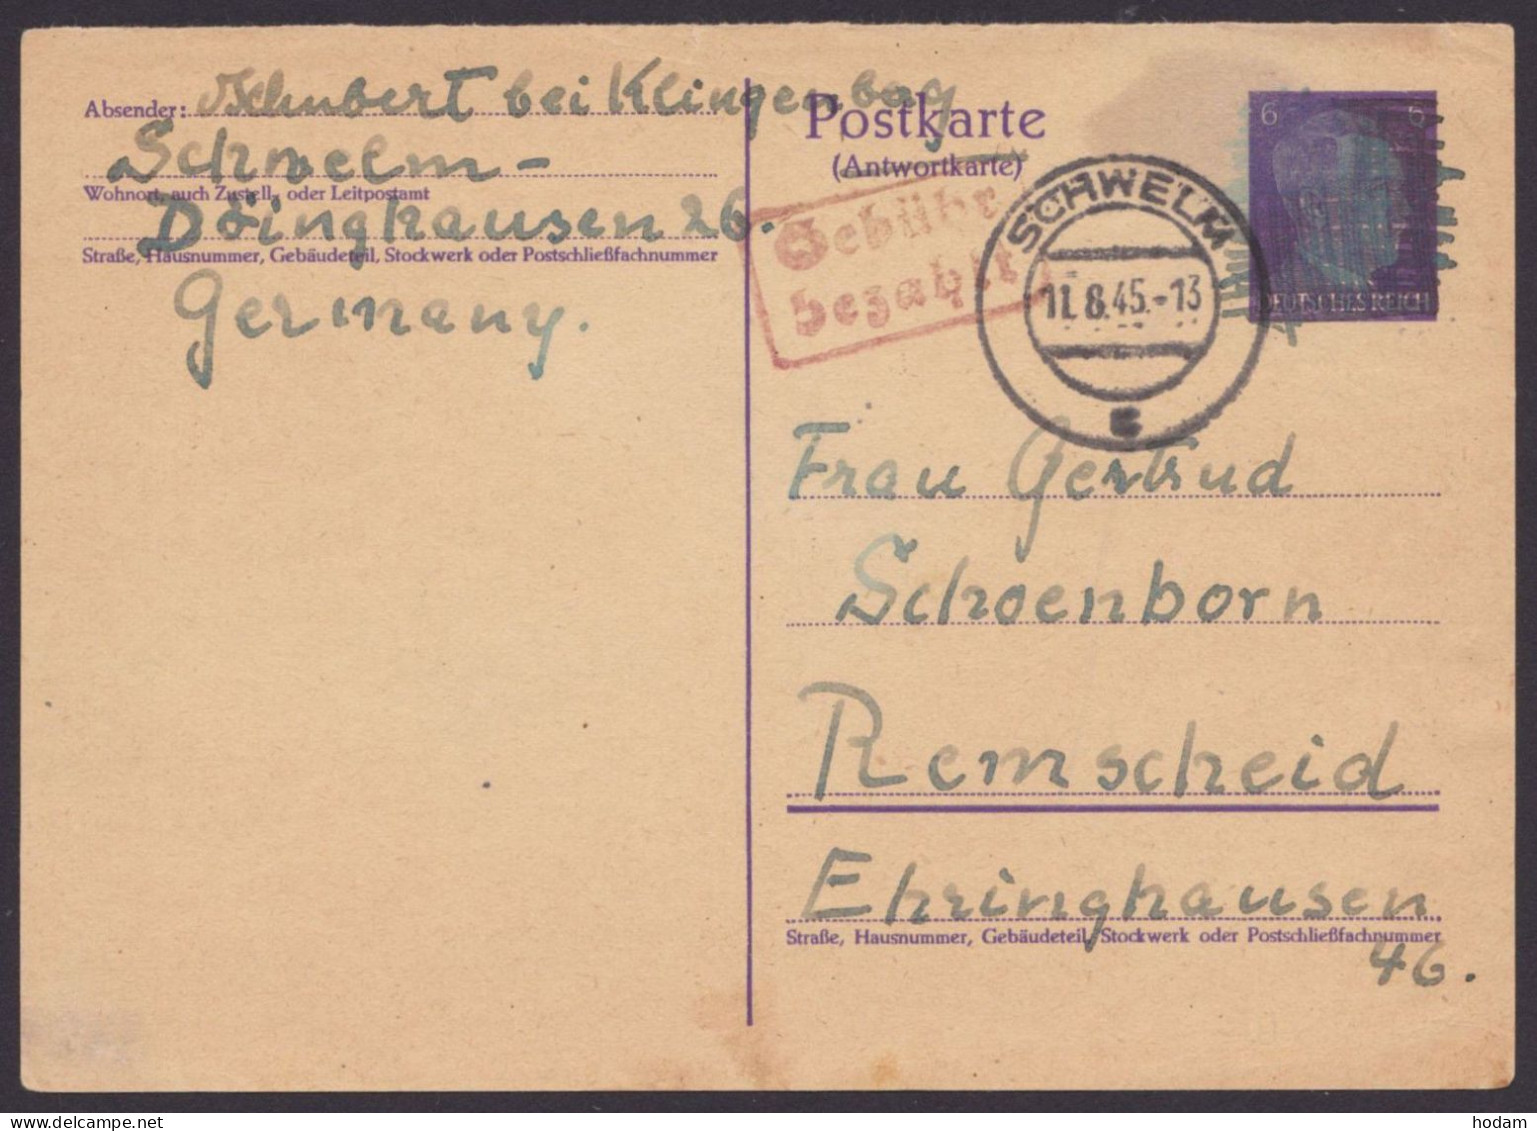 Absender: Tschubert bei Klingenbag
Schwelm-
Wohnort, auch Zustell- oder Leitpostamt
Döinghausen 26.
Straße, Hausnummer, Gebäudeteil, Stockwerk oder Postschließfachnummer
Germany.
Postkarte
(Antwortkarte)
Gebühr
bezahlt
SCHWELM
11.8.45.-13
6 6
DEUTSCHES REICH
Frau Gertrud
Schoenborn
Remscheid
Ehringhausen
Straße, Hausnummer, Gebäudeteil, Stockwerk oder Postschließfachnummer
46.
hodam